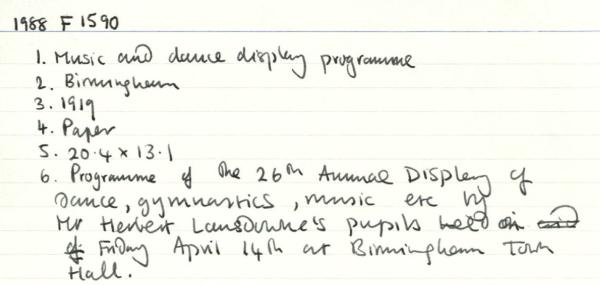 1988 F 1590
1. Music and dance display programme
2. Birmingham
3. 1919
4. Paper
5. 20.4 x 13.1
6. Programme of the 26th Annual Display of
Dance, gymnastics, music etc by
Mr Herbert Lansdowne's pupils held on
Friday April 14th at Birmingham Town
Hall.